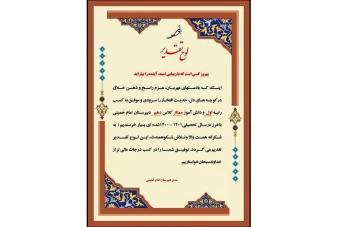 لوح تقدیر
پیروز کسی است که با زیبایی امید، آینده را بیاراید
اینک که با دستهای مهربان، عزم راسخ و ذهن خلاق
در کوچه های دل، حدیث افتخار را سرودی و موفق به کسب
رتبه اول و دانش آموز ممتاز کلاس دهم دبیرستان امام خمینی
در سال تحصیلی ۱۴۰۱ - ۱۴۰۰ شده ای بسیار خرسندیم؛ به
شکرانه همت والا و تلاش شکوهمندت، این لوح تقدیر
تقدیم می گردد. توفیق شما را در کسب درجات عالی تر از
خداوند سبحان خواستاریم.
مدیر دبیرستان امام خمینی